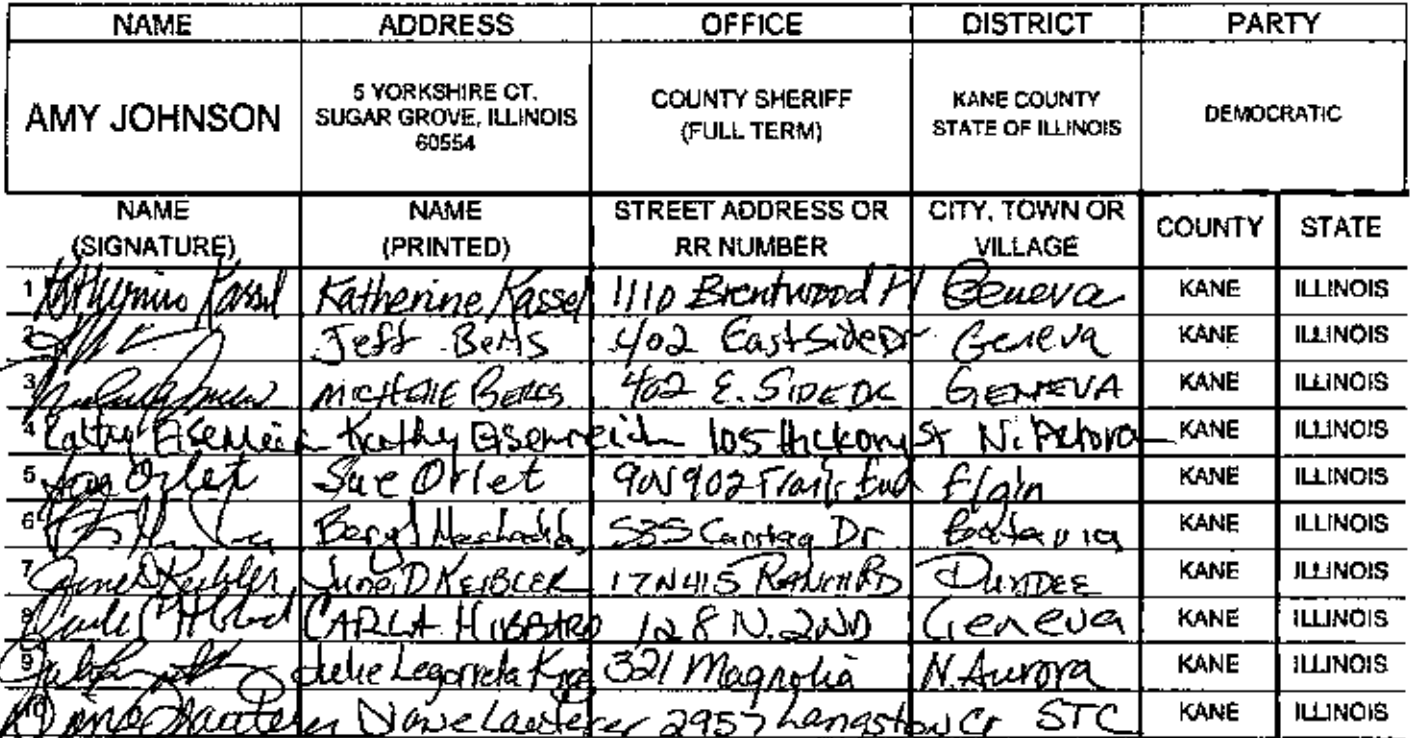 NAME ADDRESS OFFICE DISTRICT PARTY
AMY JOHNSON 5 YORKSHIRE CT. SUGAR GROVE, ILLINOIS 60554 COUNTY SHERIFF (FULL TERM) KANE COUNTY STATE OF ILLINOIS DEMOCRATIC
NAME (SIGNATURE) NAME (PRINTED) STREET ADDRESS OR RR NUMBER CITY, TOWN OR VILLAGE COUNTY STATE
1 Katherine Kassel 1110 Brentwood Pl Geneva KANE ILLINOIS
2 Jeff 402 EastSide Dr Geneva KANE ILLINOIS
3 MICHELLE 402 E. SIDE DR GENEVA KANE ILLINOIS
4 Kathy Eisenreich Kathy Eisenreich 105 Hickory St N. KANE ILLINOIS
5 Orlet Sue Orlet 902 Trails End Elgin KANE ILLINOIS
6 Beryl 535 Dr Batavia KANE ILLINOIS
7 June Keibler June D KEIBLER 17N415 RANCH RD DUNDEE KANE ILLINOIS
8 CARLA HIBBARD 128 N. 2ND Geneva KANE ILLINOIS
9 Julie Legorreta 321 Magnolia N. Aurora KANE ILLINOIS
10 2957 Langston Cr STC KANE ILLINOIS